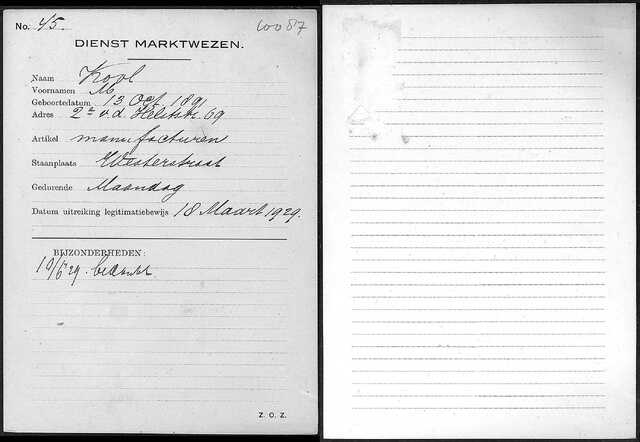 No. 45. 60087
DIENST MARKTWEZEN.
Naam Kool
Voornamen M
Geboortedatum 13 Oct 1891
Adres 2e v.d. Helststr. 69
Artikel manufacturen
Staanplaats Westerstraat
Gedurende Maandag
Datum uitreiking legitimatiebewijs 18 Maart 1929.
BIJZONDERHEDEN:
10/6 29. bedankt
Z. O. Z.